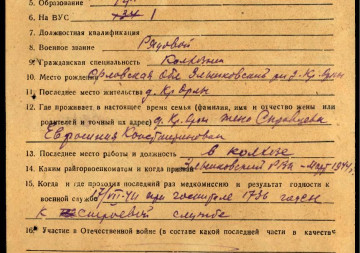 5. Образование
6. На ВУС 134 1
7. Должностная квалификация
8. Военное звание Рядовой
9. Гражданская специальность Колхозник
10. Место рождения Орловская Обл
11. Последнее место жительства д. Кр
12. Где проживает в настоящее время семья (фамилия, имя и отчество жены или
родителей и точный их адрес) д. Кр. жена
Евросиния Константиновна
13. Последнее место работы и должность в колхозе
14. Каким райгорвоенкоматом и когда призван РВК - март 1944 г.
15. Когда и где проходил последний раз медкомиссию и результат годности к
военной службе 17/VII-44 при госпитале 1736 годен
к строевой службе
16. Участие в Отечественной войне (в составе какой последней части в качестве